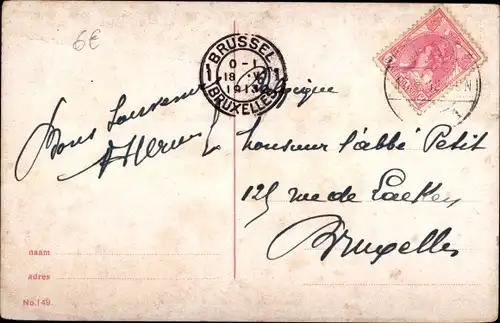 6€
BRUSSEL
0-1
1 18 V 1
1913
BRUXELLES
Belgique
Bons Souvenirs
Monsieur l'abbé Petit
125 rue de Laeken
Bruxelles
naam
adres
No.149.